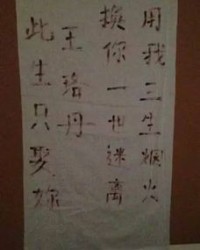 用我三生烟火
换你一世迷离
王珞丹
此生只娶妳